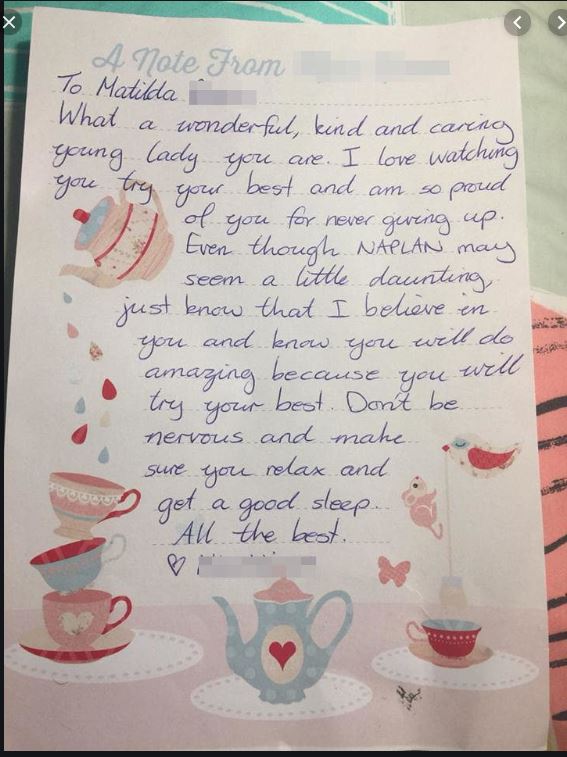 A Note From
To Matilda
What a wonderful, kind and caring
young lady you are. I love watching
you try your best and am so proud
of you for never giving up.
Even though NAPLAN may
seem a little daunting,
just know that I believe in
you and know you will do
amazing because you will
try your best. Don't be
nervous and make
sure you relax and
get a good sleep.
All the best.
♡